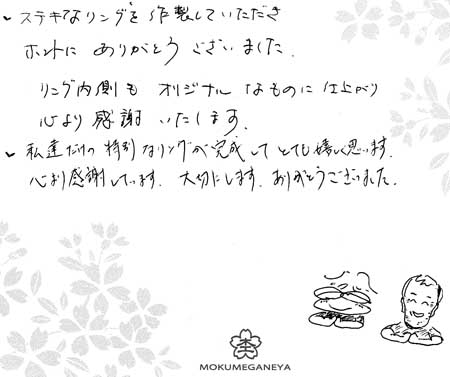 ステキなリングを作製していただき
ホントにありがとうございました.
リング内側もオリジナルなものに仕上がり
心より感謝いたします.
私達だけの特別なリングが完成してとても嬉しく思います.
心より感謝しています. 大切にします. ありがとうございました.
MOKUMEGANEYA